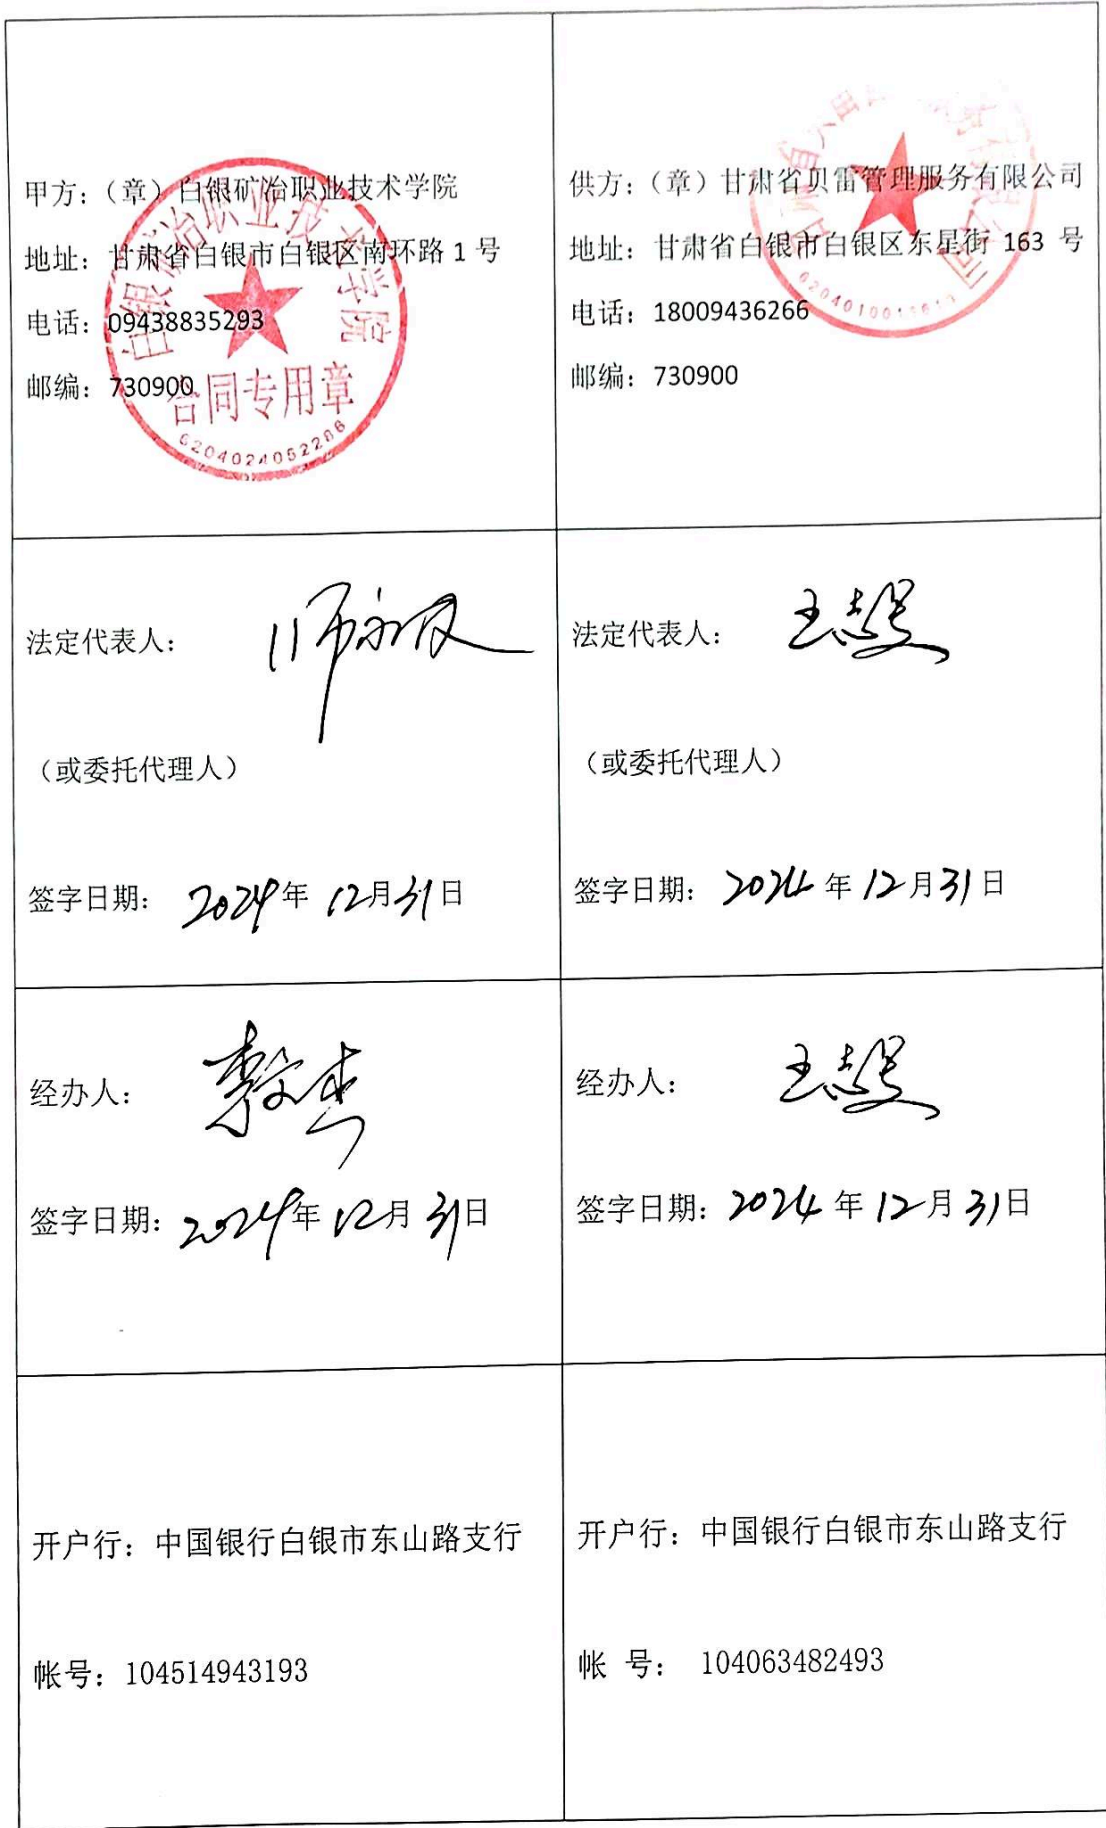 甲方：（章）白银矿冶职业技术学院
地址：甘肃省白银市白银区南环路1号
电话：09438835293
邮编：730900
白银矿冶职业技术学院
合同专用章
6204024052286
供方：（章）甘肃省贝雷管理服务有限公司
地址：甘肃省白银市白银区东星街 163 号
电话：18009436266
邮编：730900
法定代表人：
（或委托代理人）
签字日期： 2024年 12月31日
法定代表人： 王志
（或委托代理人）
签字日期： 2024年12月31日
经办人：
签字日期：2024年12月31日
经办人： 王志
签字日期：2024年12月31日
开户行：中国银行白银市东山路支行
帐号：104514943193
开户行：中国银行白银市东山路支行
帐 号： 104063482493